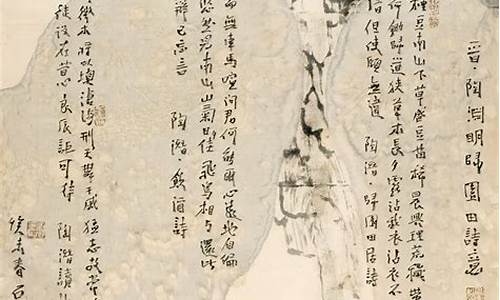 晉·陶淵明歸園田詩意
種豆南山下草盛豆苗稀晨興理荒穢帶
荷鋤歸道狹草木長夕露沾我衣衣沾不
惜但使願無違 陶潛·歸園田居詩
而無車馬喧問君何能爾心遠地自偏
悠然見南山山氣日夕佳飛鳥相與還此
辨已忘言 陶潛·飲酒詩
微木將以填滄海刑天舞干戚猛志故常
徒設在昔心良辰詎可待 陶潛讀山
癸未春石